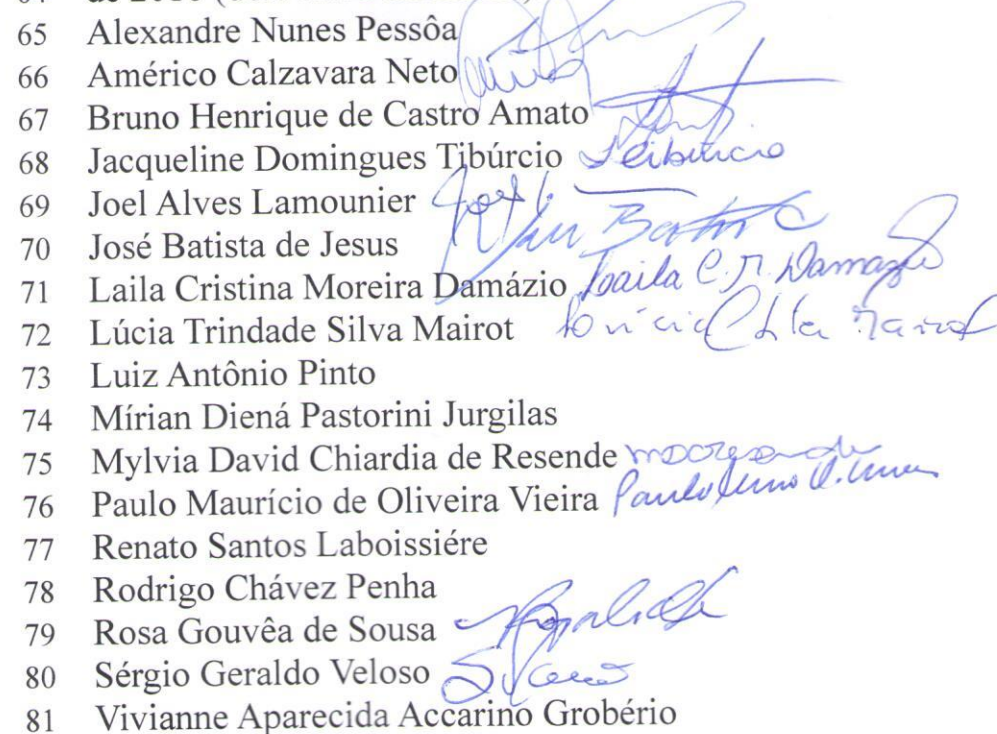 65 Alexandre Nunes Pessôa
66 Américo Calzavara Neto
67 Bruno Henrique de Castro Amato
68 Jacqueline Domingues Tibúrcio
69 Joel Alves Lamounier
70 José Batista de Jesus
71 Laila Cristina Moreira Damázio Laila C. M. Damázio
72 Lúcia Trindade Silva Mairot
73 Luiz Antônio Pinto
74 Mírian Diená Pastorini Jurgilas
75 Mylvia David Chiardia de Resende
76 Paulo Maurício de Oliveira Vieira
77 Renato Santos Laboissiére
78 Rodrigo Chávez Penha
79 Rosa Gouvêa de Sousa
80 Sérgio Geraldo Veloso
81 Vivianne Aparecida Accarino Grobério